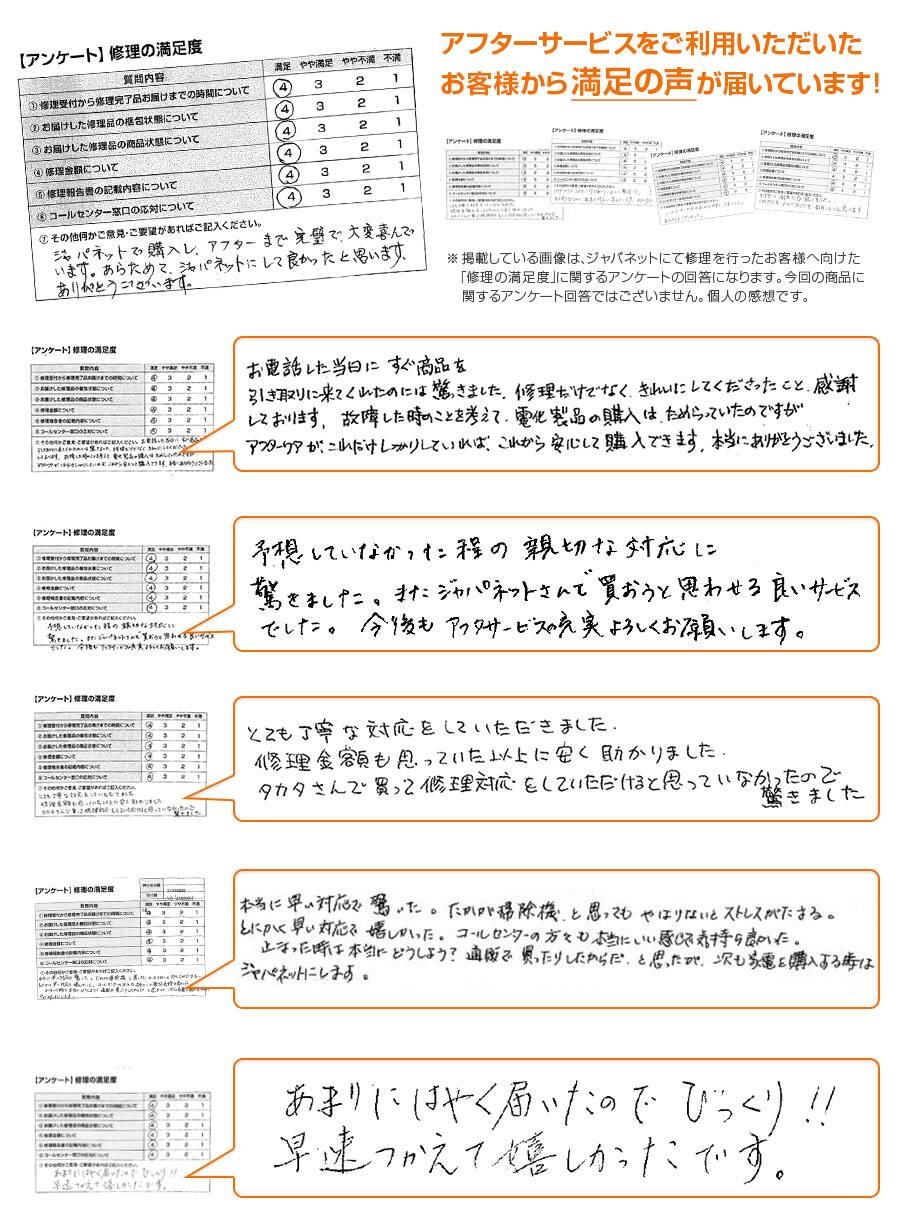 【アンケート】修理の満足度
質問内容 満足 やや満足 やや不満 不満
①修理受付から修理完了品お届けまでの時間について ④ 3 2 1
②お届けした修理品の梱包状態について ④ 3 2 1
③お届けした修理品の商品状態について ④ 3 2 1
④修理金額について ④ 3 2 1
⑤修理報告書の記載内容について ④ 3 2 1
⑥コールセンター窓口の応対について ④ 3 2 1
⑦その他何かご意見・ご要望があればご記入ください。
ジャパネットで購入し、アフターまで完璧で、大変喜んで
います。あらためて、ジャパネットにして良かったと思います。
ありがとうございます。
アフターサービスをご利用いただいた
お客様から満足の声が届いています!
※掲載している画像は、ジャパネットにて修理を行ったお客様へ向けた
「修理の満足度」に関するアンケートの回答になります。今回の商品に
関するアンケート回答ではございません。個人の感想です。
【アンケート】修理の満足度
お電話した当日に すぐ商品を
引き取りに来てくれたのには驚きました。修理だけでなく、きれいにしてくださったこと、感謝
しております。故障した時のことを考えて、電化製品の購入は、ためらっていたのですが
アフターケアが、これだけしっかりしていれば、これから安心して購入できます。本当にありがとうございました。
【アンケート】修理の満足度
予想していなかった程の親切な対応に
驚きました。またジャパネットさんで買おうと思わせる良いサービス
でした。今後もアフタサービスの充実よろしくお願いします。
【アンケート】修理の満足度
とても丁寧な対応をしていただきました。
修理金額も思っていた以上に安く助かりました。
タカタさんで買って修理対応をしていただけると思っていなかったので
驚きました
【アンケート】修理の満足度
本当に早い対応で驚いた。たかが掃除機、と思っても やはりないとストレスがたまる。
とにかく早い対応で嬉しかった。コールセンターの方々も本当にいい感じで気持ち良かった。
止まった時は本当にどうしよう?通販で買ったりしたからだ、と思ったが、次も家電を購入する時は
ジャパネットにします。
【アンケート】修理の満足度
あまりにはやく届いたので びっくり!!
早速つかえて嬉しかったです。